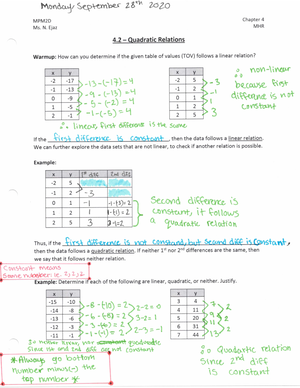 Monday, September 28th 2020
MPM2D
Ms. N. Ejaz
Chapter 4
MHR
4.2 – Quadratic Relations
Warmup: How can you determine if the given table of values (TOV) follows a linear relation?
x y
-2 -17
-1 -13
0 -9
1 -5
2 -1
-13-(-17) = 4
-9-(-13) = 4
-5-(-9) = 4
-1-(-5) = 4
∴ linear, first difference is the same
x y
-2 5
-1 2
0 1
1 2
2 5
-3
-1
1
3
∴ non-linear
because first
difference is not
constant
If the first difference is constant, then the data follows a linear relation.
We can further explore the data sets that are not linear, to check if another relation is possible.
Example:
x y 1st diff 2nd diff
-2 5
-1 2 -3
0 1 -1 -1-(-3)=2
1 2 1 1-(-1)=2
2 5 3 3-1=2
Second difference is
constant, it follows
a quadratic relation
Thus, if the first difference is not constant, but second diff is constant,
then the data follows a quadratic relation. If neither 1st nor 2nd differences are the same, then
we say that it follows neither relation.
Constant means
same number ie. 3,3,3
Example: Determine if each of the following are linear, quadratic, or neither. Justify.
x y
-15 -10
-14 -8
-13 -6
-12 -3
-11 -1
-8-(-10) = 2
-6-(-8) = 2
-3-(-6) = 3
-1-(-3) = 2
2-2=0
3-2=1
2-3=-1
x y
3 4
4 11
5 20
6 31
7 44
7
9
11
13
2
2
2
∴ Quadratic relation
since 2nd diff
is constant
* Always go bottom
number minus(-) the
top number *